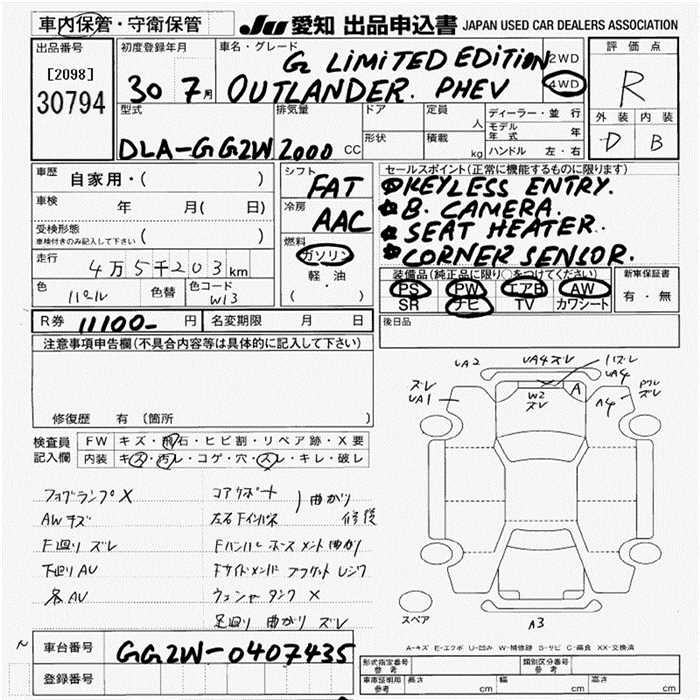 車内保管・守衛保管 JU 愛知 出品申込書 JAPAN USED CAR DEALERS ASSOCIATION
出品番号 [2098] 30794
初度登録年月 30 7月
車名・グレード G2 LIMITED EDITION
OUTLANDER. PHEV
2WD
4WD
評価点
R
外装 内装
D B
型式 DLA-GG2W
排気量 2000 CC
ドア
形状
定員 人
積載 kg
ディーラー・並行
モデル年式 年
ハンドル 左・右
車歴 自家用・( )
車検 年 月( 日)
受検形態 車検付きのみ記入して下さい ( )
走行 4万5千203km
色 パール
色替
色コード W13
シフト FAT
冷房 AAC
燃料 ガソリン
軽・油
( )
セールスポイント(正常に機能するものに限ります)
KEYLESS ENTRY.
B. CAMERA.
SEAT HEATER.
CORNER SENSOR.
装備品(純正品に限り○をつけてください)
PS PW エアB AW
SR ナビ TV カワシート
新車保証書
有・無
R券 11100- 円
名変期限 月 日
後日品
注意事項申告欄(不具合内容等は具体的に記入して下さい)
修復歴 有 (箇所 )
検査員記入欄
FW キズ・飛石・ヒビ割・リペア跡・X要
内装 キズ・汚レ・コゲ・穴・スレ・キレ・破レ
フォグランプX
AWキズ
F廻り ズレ
下廻りAU
各AU
コアサポート 曲がり
左右Fインパネ 修復
Fバンパーホースメント曲がり
Fサイドメンバーブラケットレジワ
ウォッシャタンクX
足廻り 曲がり ズレ
UA2
UA4ズレ
ズレ
UA1
W2
ズレ
A
A4
UA4
ズレ
スペア
A3
A-キズ E-エクボ U-凹み W-補修跡 S-サビ C-腐食 XX-交換済
車台番号 GG2W-0407435
登録番号
形式指定番号 参考
類別区分番号 参考
車庫証明用 参考 長さ cm 幅 cm 高さ cm